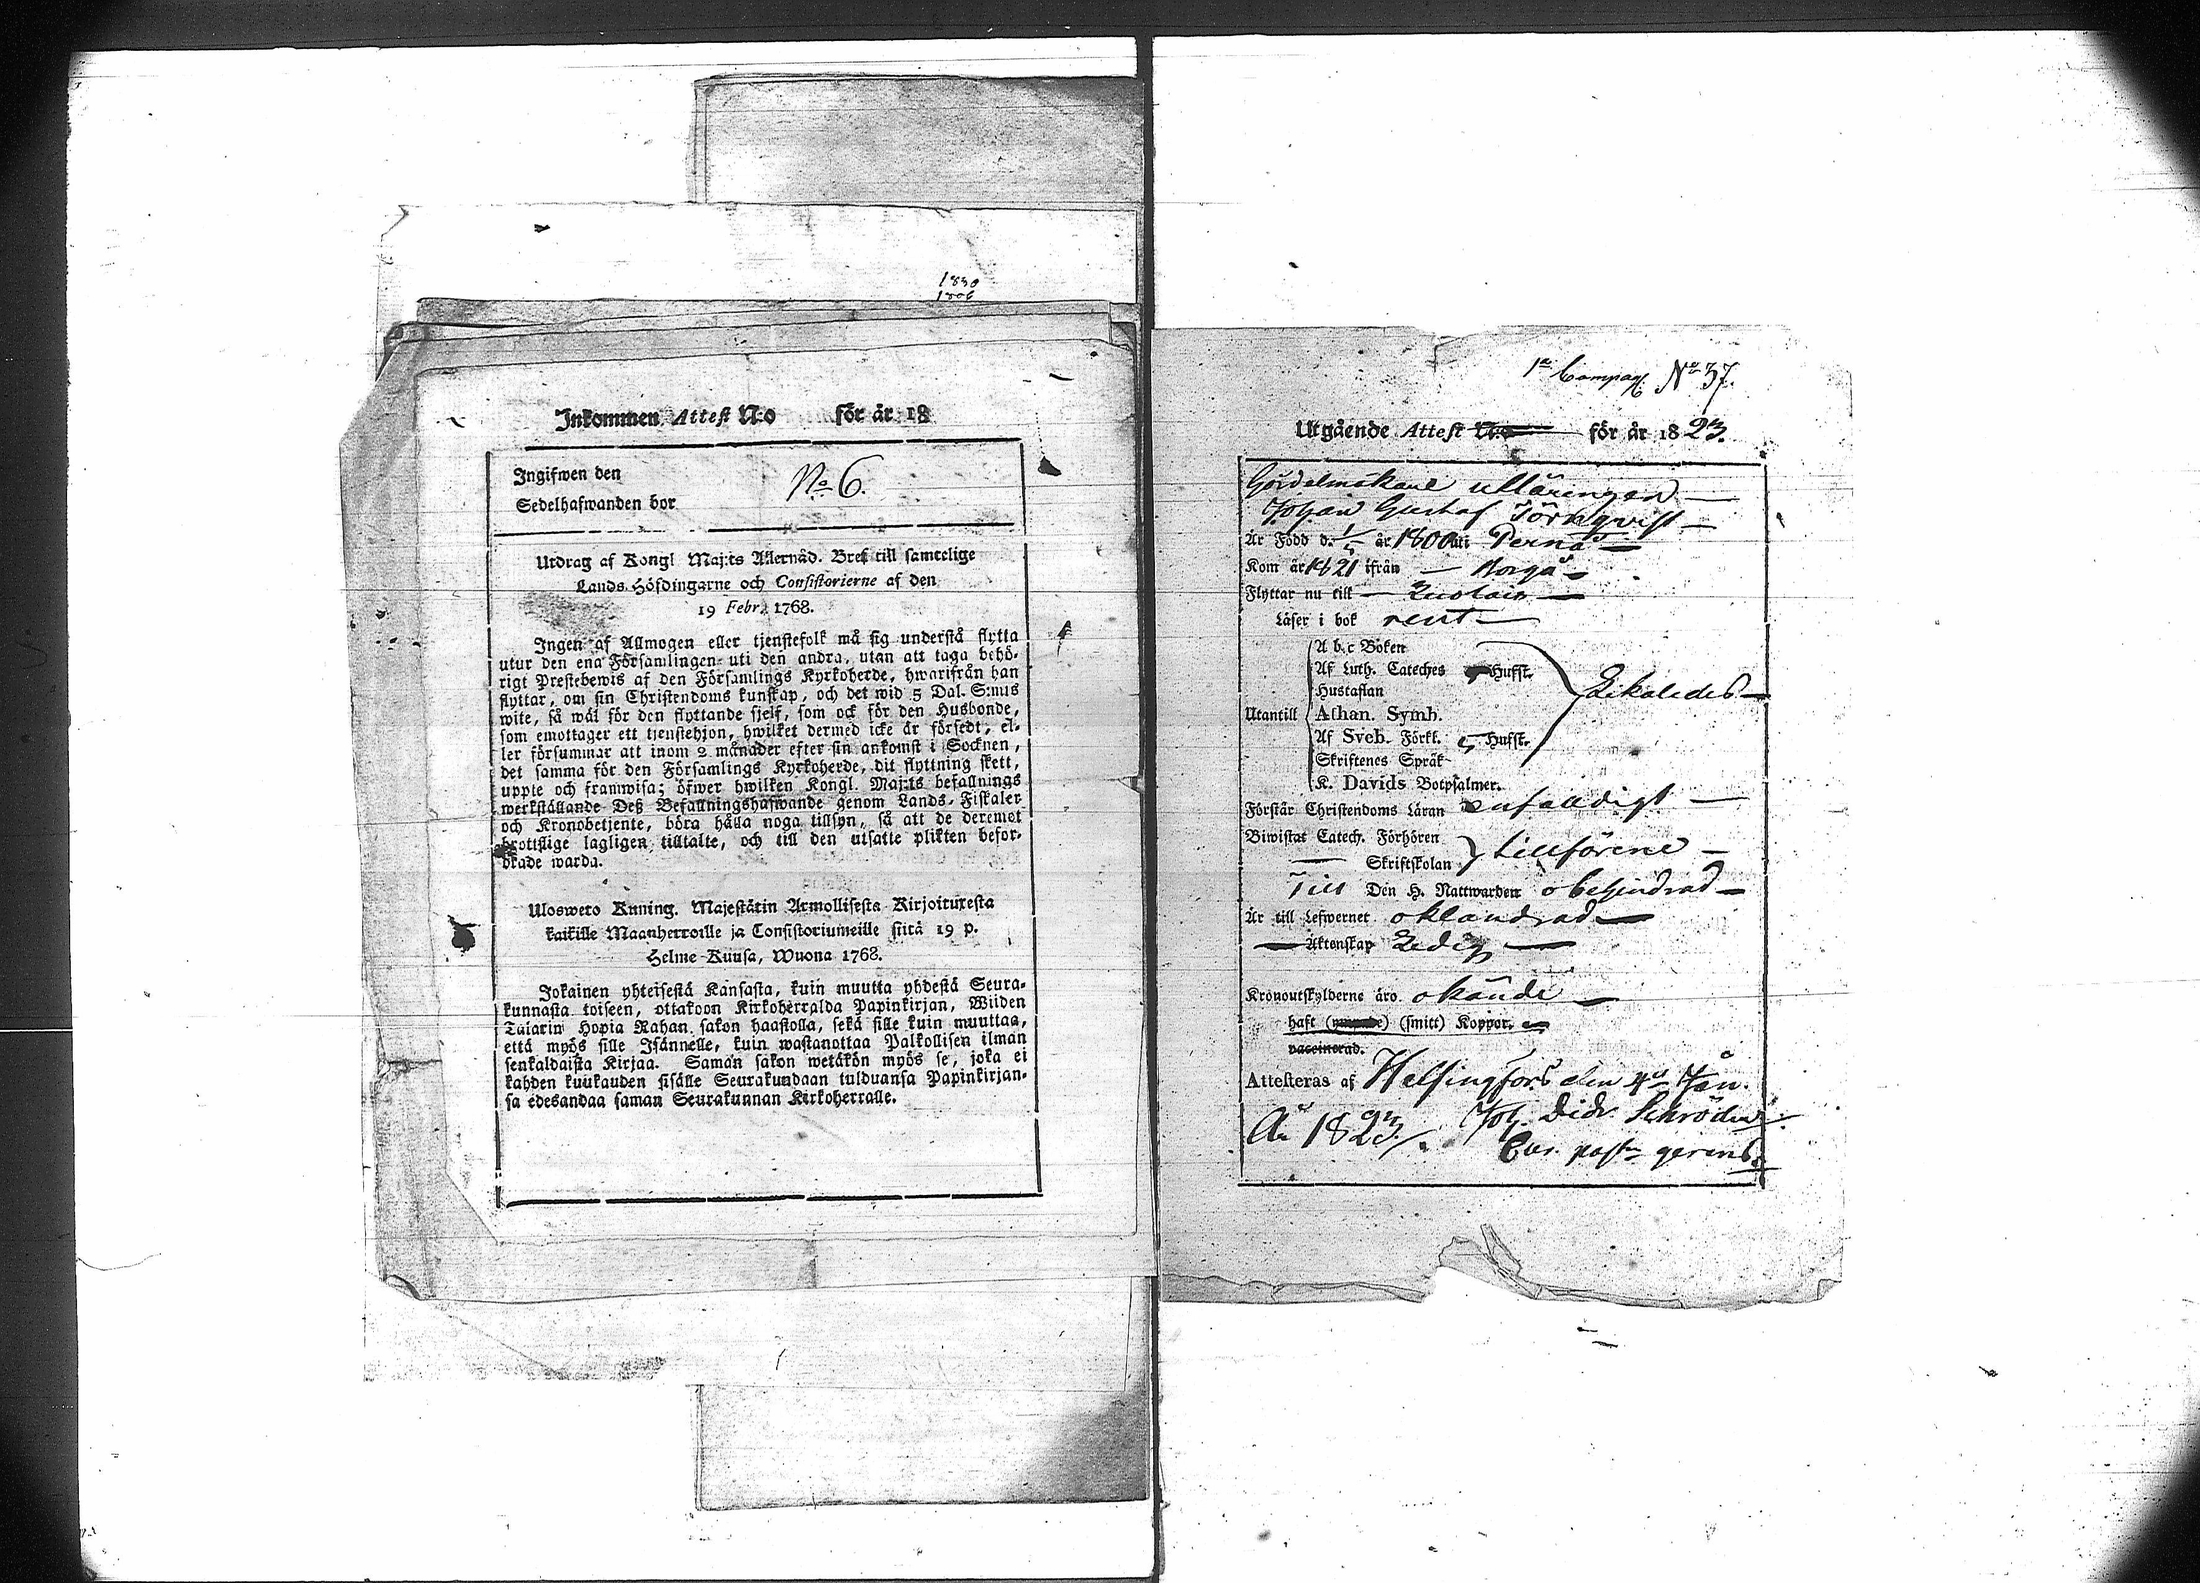 1830
1806
Inkommen Attest N:o för år 18
Ingifwen den
No 6.
Sedelhafwanden bor
Utdrag af Kongl Maj:ts Allernåd. Bref till samtelige
Lands-Höfdingarne och Consistorierne af den
19 Febr. 1768.
Ingen af Allmogen eller tjenstefolk må sig understå flytta
utur den ena Församlingen uti den andra, utan att taga behö-
rigt Prestebewis af den Församlings Kyrkoherde, hwarifrån han
flyttar, om sin Christendoms kunskap, och det wid 5 Dal. S:mts
wite, så wäl för den flyttande sjelf, som ock för den Husbonde,
som emottager ett tjenstehjon, hwilket dermed icke är försedt, el-
ler försummar att inom 2 månader efter sin ankomst i Socknen,
det samma för den Församlings Kyrkoherde, dit flyttning skett,
uppte och framwisa; öfwer hwilken Kongl. Maj:ts befallnings
werkställande Deß Befallningshafwande genom Lands-Fiskaler
och Kronobetjente, böra hålla noga tillsyn, så att de deremot
brottslige lagligen tilltalte, och till den utsatte plikten befor-
drade warda.
Ulosweto Kuning. Majestätin Armollisesta Kirjoituxesta
kaikille Maanherroille ja Consistoriumeille siitä 19 p.
Helme-Kuusa, Wuona 1768.
Jokainen yhteisestä Kansasta, kuin muutta yhdestä Seura-
kunnasta toiseen, ottakoon Kirkoherralda Papinkirjan, Wiiden
Talarin Hopia Rahan sakon haastolla, sekä sille kuin muuttaa,
että myös sille Isännelle, kuin wastanottaa Palkollisen ilman
senkaldaista Kirjaa. Saman sakon wetäkön myös se, joka ei
kahden kuukauden sisälle Seurakundaan tulduansa Papinkirjan-
sa edesandaa saman Seurakunnan Kirkoherralle.
1a Compag. No 37.
Utgående Attest N:o för år 1823.
Gördelmakare utläringen
Johan Gustaf Törnqvist
Är Född d. 1/5 år 1800 uti Pernå
Kom år 1821 ifrån Borgå
Flyttar nu till
Läser i bok rent
A b c Boken
Af Luth. Cateches Hufst.
Hustaflan
Utantill Athan. Symb.
Af Sveb. Förkl. 5 Hufst.
Skriftenes Språk
K. Davids Botpsalmer.
Förstår Christendoms Läran enfaldigt
Biwistat Catech. Förhören
Skriftskolan tillförene
Till Den H. Nattwarden obehindrad
Är till Lefwernet oklandrad
Äktenskap Ledig
Kronoutskylderne äro okände
haft (smitt) Koppor.
vaccinerad.
Attesteras af Helsingfors den 4de Jan.
År 1823. Joh. Didr. Schröder
Cur. past. gerens.